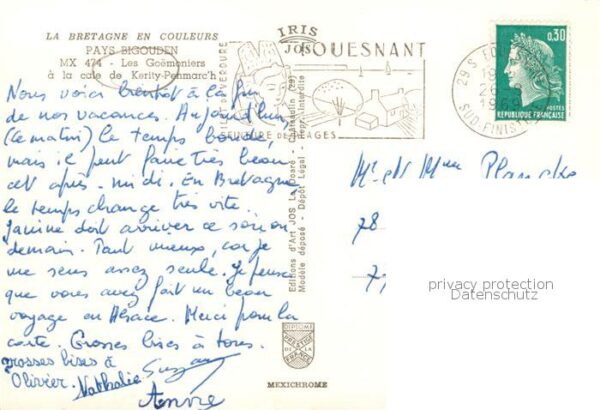 LA BRETAGNE EN COULEURS
PAYS BIGOUDEN
MX 474 - Les Goëmoniers
à la cale de Kerity-Penmarc'h
Nous voici bientôt à la fin
de nos vacances. Aujourd'hui
(ce matin) le temps boude,
mais il peut faire très beau
cet après-midi. En Bretagne
le temps change très vite.
Janine doit arriver ce soir ou
demain. Tant mieux, car je
me sens assez seule. Je pense
que vous avez fait un beau
voyage en Alsace. Merci pour la
carte. Grosses bises à tous.
grosses bises à
Olivier. Nathalie
IRIS
JOS
FOUESNANT
VERDURE
CEINTURE DE PLAGES
Editions d'Art JOS Le Doaré - Châteaulin (29)
Modèle déposé - Dépôt Légal - Repr. interdite
DIPLOME
PRESTIGE
DE LA
FRANCE
MEXICHROME
29 S
26
1969
SUD-FINISTERE
0,30
POSTES
REPUBLIQUE FRANÇAISE
Mr et Mme
78
privacy protection
Datenschutz